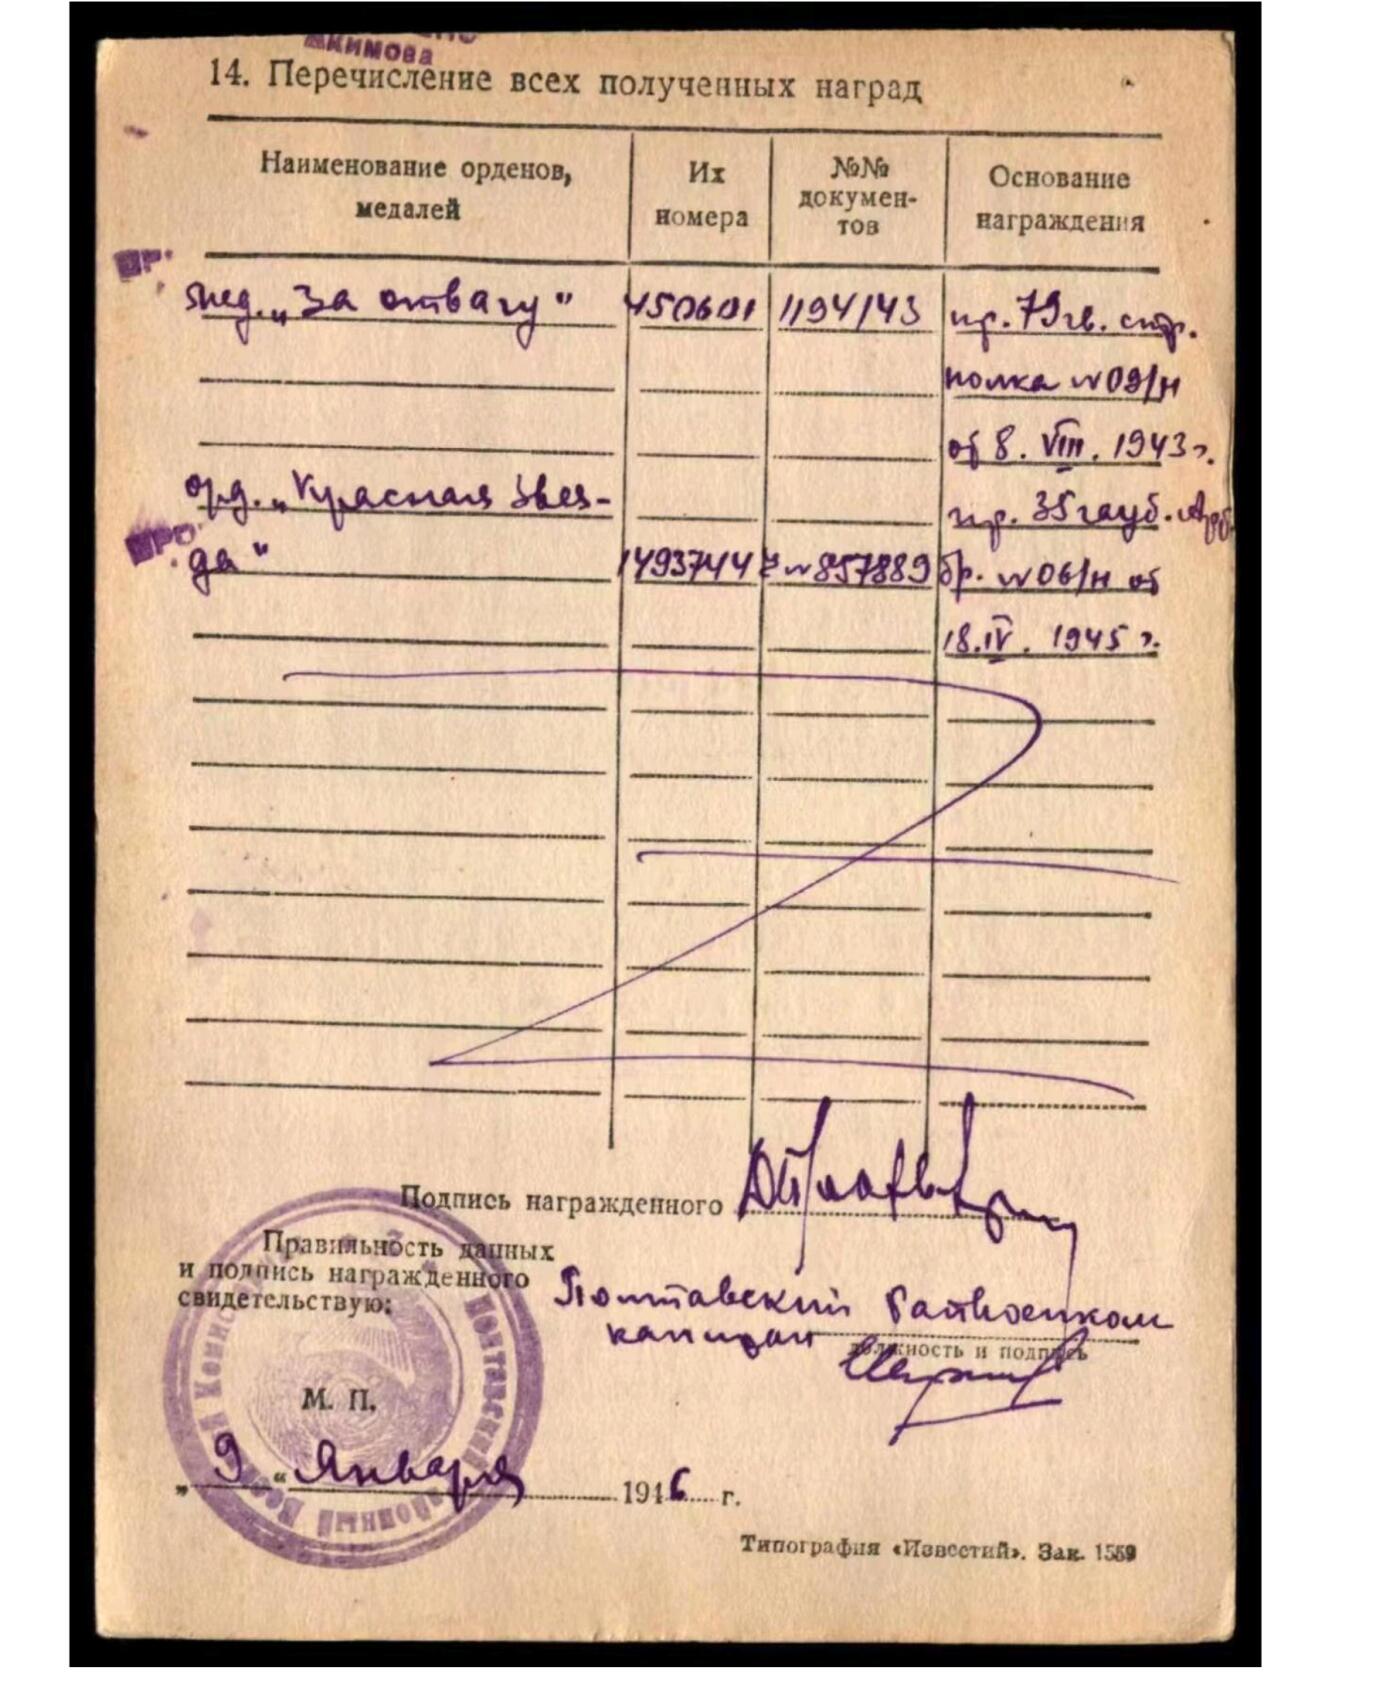 Акимова
14. Перечисление всех полученных наград
Наименование орденов, медалей
Их номера
№№ докумен-тов
Основание награждения
мед. „За отвагу" 450601 1194/43 пр. 79 гв. стр.
полка №09/н
от 8. VIII. 1943 г.
орд. „Красная Звез- пр. 35 гауб. Арт.
да" 1493744 № 857889 бр. №06/н от
18. IV. 1945 г.
Подпись награжденного
Правильность данных
и подпись награжденного
свидетельствую:
Полтавский Райвоенком
капитан
должность и подпись
М. П.
„ 9 " Января 1946 г.
Типография «Известий». Зак. 1559